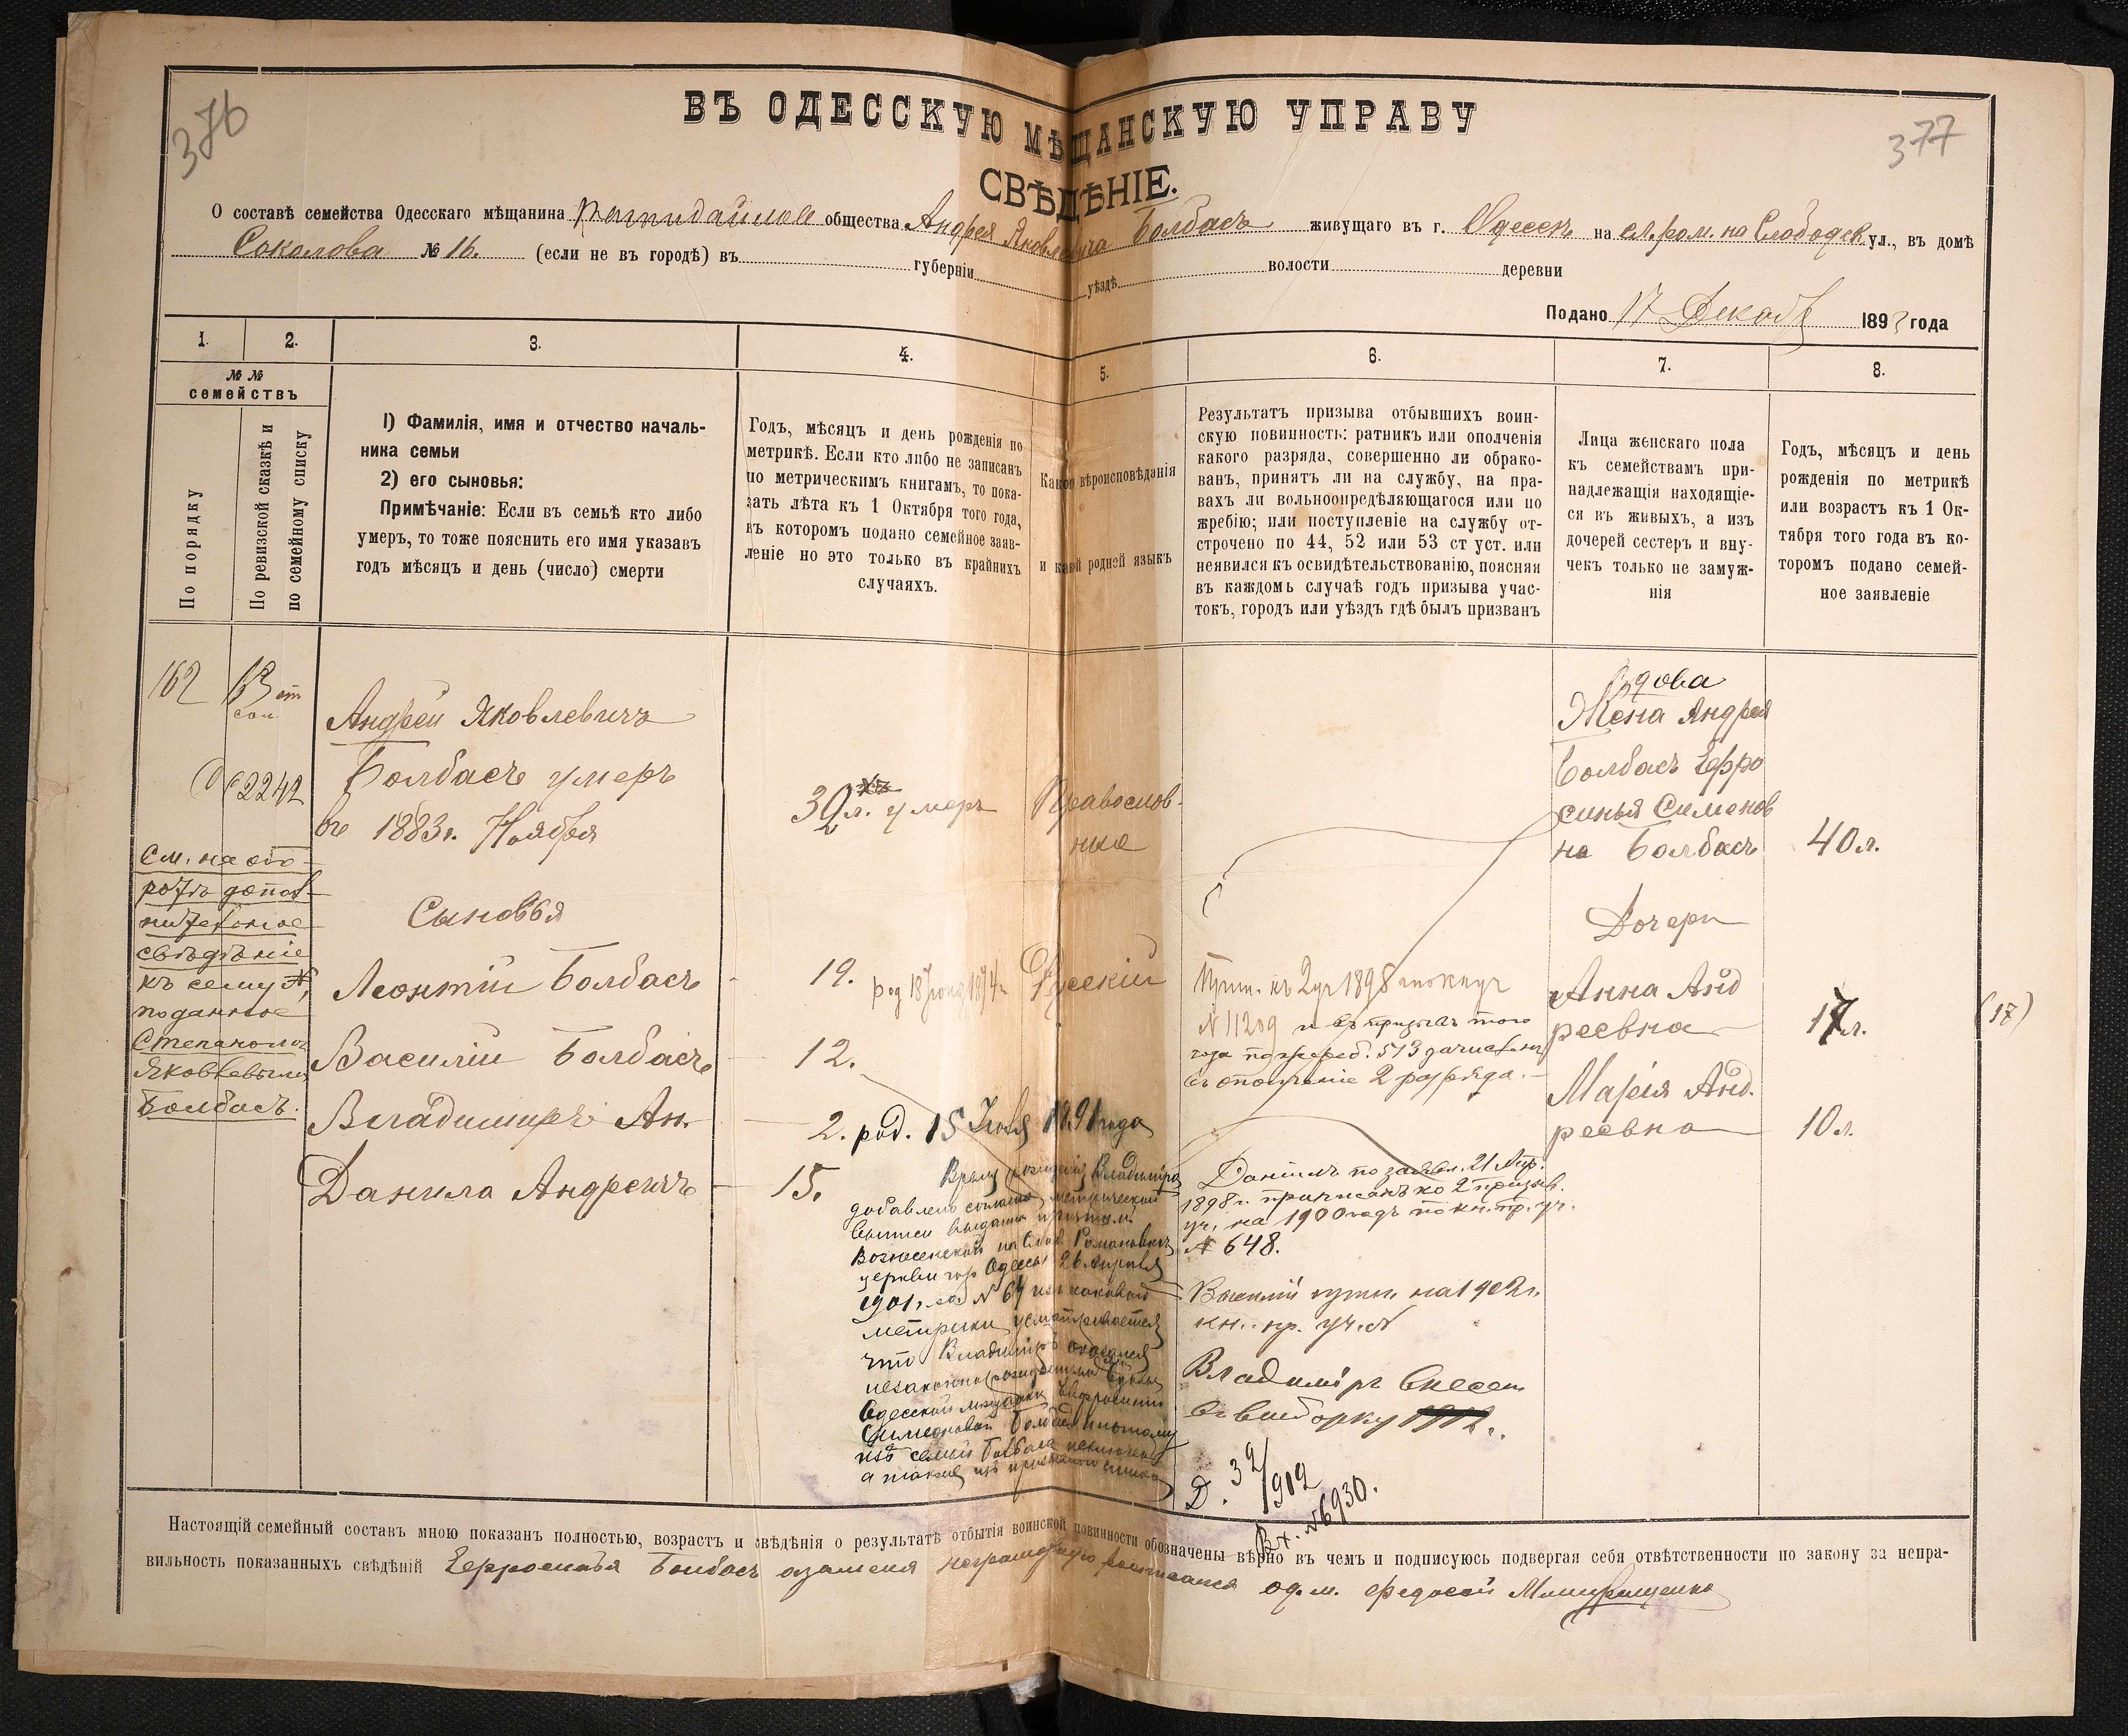 376
377
ВЪ ОДЕССКУЮ МѢЩАНСКУЮ УПРАВУ
СВѢДѢНІЕ.
О составѣ семейства Одесскаго мѣщанина общества Андрея Яковлевича Болбасъ живущаго въ г. Одессѣ на сл. ром. на Слободск ул., въ домѣ
Соколова № 16. (если не въ городѣ) въ губерніи уѣздѣ волости деревни
Подано 17 Декаб 189 года
1. 2. 3. 4. 5. 6. 7. 8.
№ №
семействъ
По порядку
По ревизской сказкѣ и
по семейному списку
1) Фамилія, имя и отчество началь-
ника семьи
2) его сыновья:
Примѣчаніе: Если въ семьѣ кто либо
умеръ, то тоже пояснить его имя указавъ
годъ мѣсяцъ и день (число) смерти
Годъ, мѣсяцъ и день рожденія по
метрикѣ. Если кто либо не записанъ
по метрическимъ книгамъ, то пока-
зать лѣта къ 1 Октября того года,
въ которомъ подано семейное заяв-
леніе но это только въ крайнихъ
случаяхъ.
Какой вѣроисповѣданія
и какой родней языкъ
Результатъ призыва отбывшихъ воин-
скую повинность: ратникъ или ополченія
какого разряда, совершенно ли обрако-
ванъ, принятъ ли на службу, на пра-
вахъ ли вольноопредѣляющагося или по
жребію; или поступленіе на службу от-
строчено по 44, 52 или 53 ст уст. или
неявился къ освидѣтельствованію, поясняя
въ каждомъ случаѣ годъ призыва учас-
токъ, городъ или уѣздъ гдѣ былъ призванъ
Лица женскаго пола
къ семействамъ при-
надлежащія находящіе-
ся въ живыхъ, а изъ
дочерей сестеръ и вну-
чекъ только не замуж-
нія
Годъ, мѣсяцъ и день
рожденія по метрикѣ
или возрастъ къ 1 Ок-
тября того года въ ко-
торомъ подано семей-
ное заявленіе
162
2242
См. на обо-
ротѣ допол
нительное
свѣдѣніе
къ сему №,
поданное
Степаномъ
Яковлевымъ
Болбасъ.
Андрей Яковлевичъ
Болбасъ умеръ
въ 1883г. Ноября
Сыновья
Леонтій Болбасъ
Василій Болбасъ
Владимиръ Ан.
Данила Андреичъ
умеръ
19. род 18 1874
12.
2. род. 15 Іюля 1891 года
15.
Время рожденія Владиміра
добавлено согласно метрической
выписи выданной причтомъ
Вознесенской на Слоб. Романовкѣ
церкви гор Одессы 26 Апрѣля
1901 г. за № 64 изъ каковой
метрики усматривается
что Владиміръ оказался
незаконнорожденный
Одесской мѣщанки Ефросиніи
Симеоновой Болбасъ и потому
изъ семьи Болбаса исключенъ
а также изъ призывного списка
Православ-
ное
Русскій
къ 2 уч 1898
№ 11209 и въ призывъ того
года по жереб. 513 зачисленъ
въ ополченіе 2 разряда.
Даніилъ по заявл. 21 Апр.
1898 г. приписанъ ко 2 призыв.
уч. на 1900 годъ по кн. пр. уч.
№ 648.
Василій на 1902г.
кн. пр. уч. №
Владиміръ внесен
въ выборку 1912.
Д. 32/912
Вх. № 6930.
Вдова
Жена Андрея
Болбасъ Ефро
синья Сименов
на Болбасъ
Дочери
Анна Анд
реевна
Марія Анд.
реевна
40 л.
17 л.
(17)
10 л.
Настоящій семейный составъ мною показанъ полностью, возрастъ и свѣдѣнія о результатѣ отбытія воинской повинности обозначены вѣрно въ чемъ и подписуюсь подвергая себя отвѣтственности по закону за непра-
вильность показанныхъ свѣдѣній Ефросинья Болбасъ неграмотную росписался од. м. Федосей